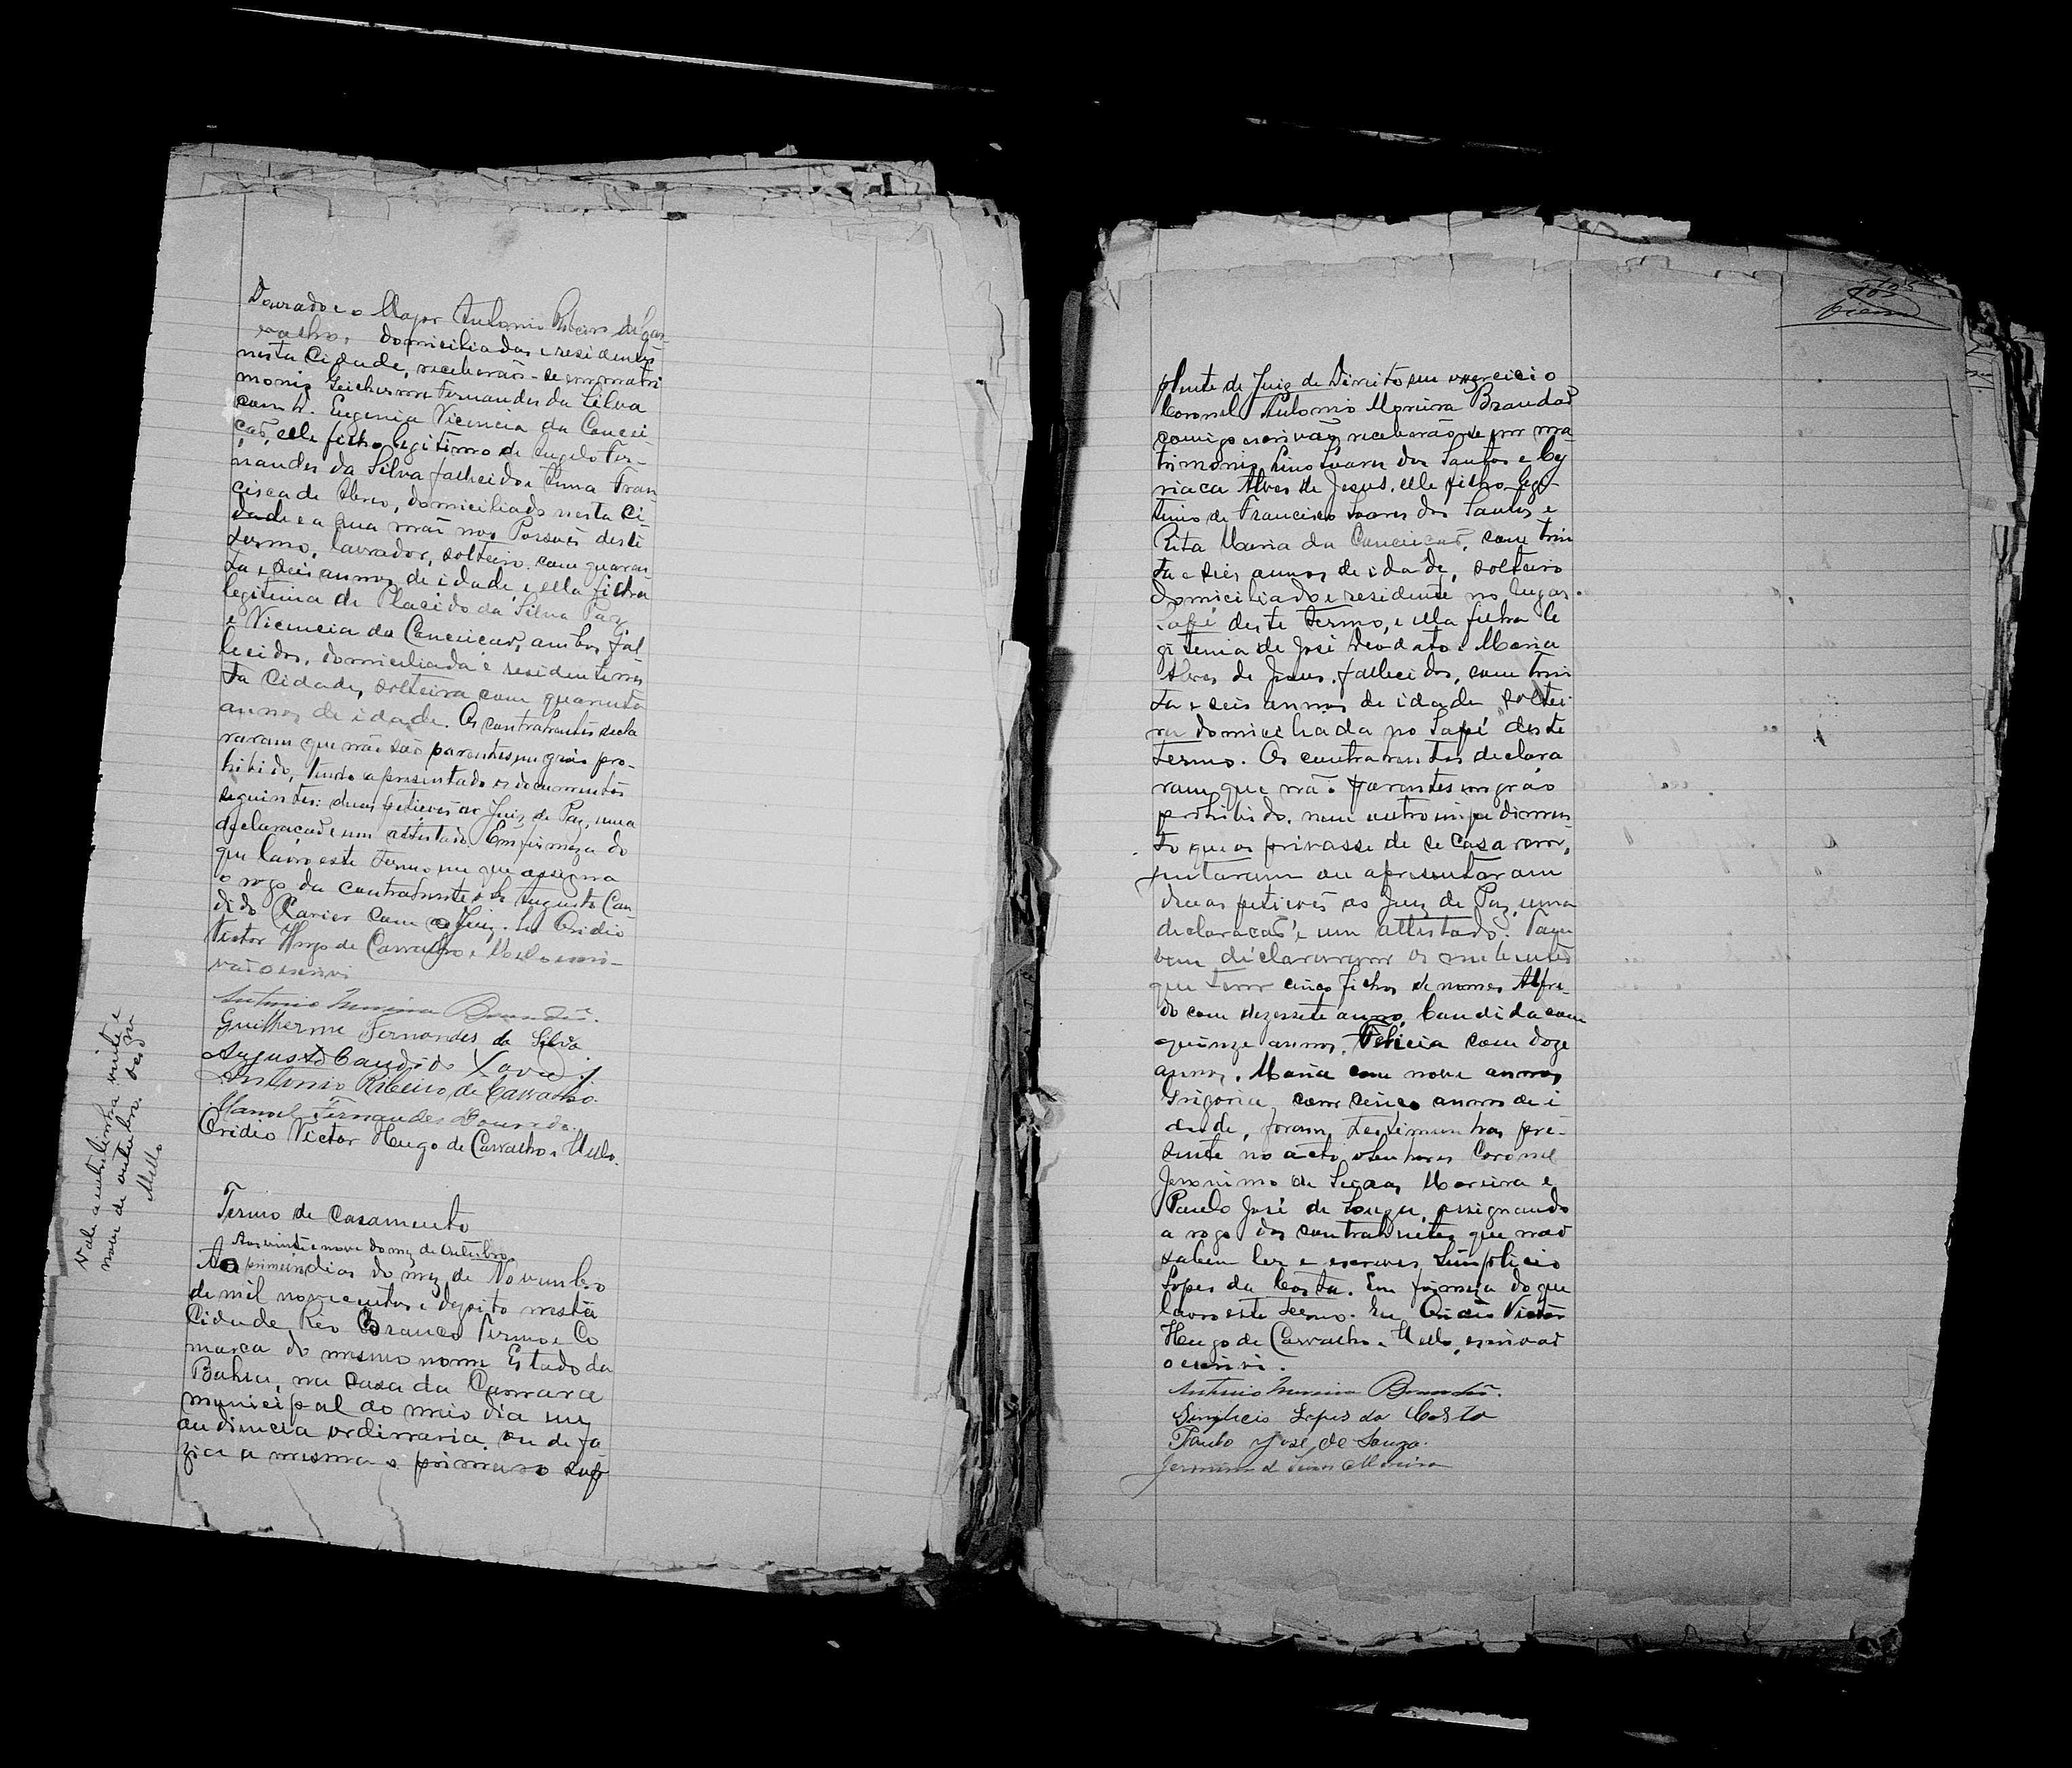 Dourado e o Major Antonio Ribeiro de Car-
valho, domiciliados e residentes
nesta Cidade, receberão-se em matri
monio Guilherme Fernandes da Silva
com D. Eugenia Vicencia da Concei
ção, elle filho legitimo de Angelo Fer-
nandes da Silva falhecido e Anna Fran
cisca de Abreu, domiciliado nesta Ci-
dade e a sua mãi nos Possões deste
termo, lavrador, solteiro com quaren-
ta e seis annos de idade, e ella filha
legitima de Placido da Silva Paz
e Vicencia da Conceicão, ambos fal
lecidos, domiciliada e residente nes
ta Cidade, solteira com quarenta
annos de idade. Os contrahentes decla
raram que não são parentes em gráo pro-
hibido, tendo apresentado os documentos
seguintes: duas petições ao Juiz de Paz, uma
declaração e um attestado. Em firmeza do
que lavro este termo em que assigna
o rogo da contrahente o Sr. Augusto Can-
dido Xavier com o Juiz. Eu Ovidio
Victor Hugo de Carvalho e Mello escri-
vão o escrivi
Antonio Moreira Brandão.
Guilherme Fernandes da Silva
Augusto Candido Xavier
Antonio Ribeiro de Carvalho.
Manoel Fernandes Dourado.
Ovidio Victor Hugo de Carvalho e Mello.
Vale a entrelinha vinte e
nove de outubro.
Mello
Termo de Casamento
Aos vinte e nove do mez de Outubro
Ao primeiro dias do mez de Novembro
de mil novecentos e dezoito nesta
Cidade Rio Branco Termo e Co
marca do mesmo nome Estado da
Bahia, na casa da Camara
municipal ao meio dia em
audiencia ordinaria que fa-
zia a mesma o primeiro sup
plente de Juiz de Direito em exercicio
Coronel Antonio Moreira Brandão
comigo escrivão receberão-se por ma-
trimonio Lino Soares dos Santos e Cy
riaca Alves de Jesus, elle filho legi-
timo de Francisco Soares dos Santos e
Rita Maria da Conceicão, com trin
ta e seis annos de idade, solteiro
domiciliado e residente no lugar
Sapé deste termo, e ella filha le
gitima de José Deodato e Maria
Alves de Jesus, fallecidos, com trin
ta e seis annos de idade soltei
ra domicihada no Sapé deste
termo. Os contrahentes declara
ram que não parentes em gráo
prohibido, nem outro impedimen-
to que os privasse de se casarem,
juntaram ou apresentaram
duas petições ao Juiz de Paz, uma
declaracão e um attestado. Tam
bem declararam os
que tem cinco filhos de nomes Alfre-
do com dezessete anno, Candida com
quinze annos, Felicia com doze
annos, Maria com nove annos
Grigoria, com cinco annos de i
dade, foram testimunhas pre-
sente no acto o Senhores Coronel
Jeronimo de Moreira e
Paulo José de Souza, assignando
a rogo dos contrahentes que não
sabem ler e escrever Simplicio
Lopes da Costa. Em firmeza do que
lavro este termo. Eu Ovidio Victor
Hugo de Carvalho e Mello, escrivão
o escrivi.
Antonio Moreira Brandão.
Simplicio Lopes da Costa
Paulo José de Souza.
Jeronimo de Moreira